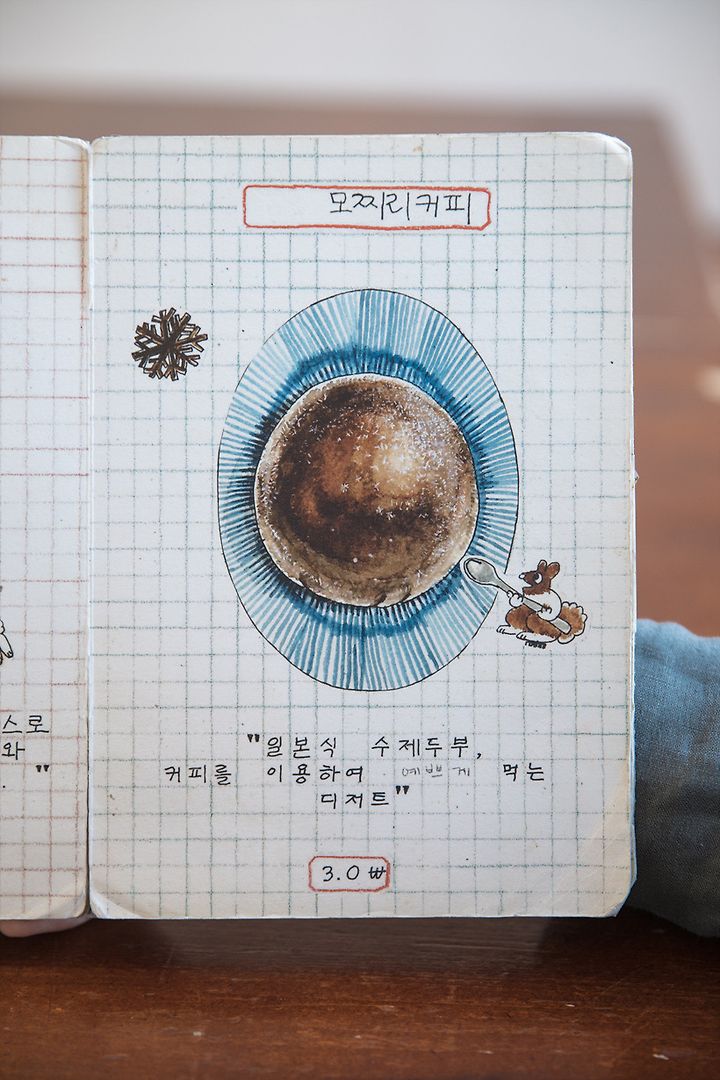 모찌리커피
스로
와
. "
"일본식 수제두부,
커피를 이용하여 예쁘게 먹는
디저트"
3.0 ₩